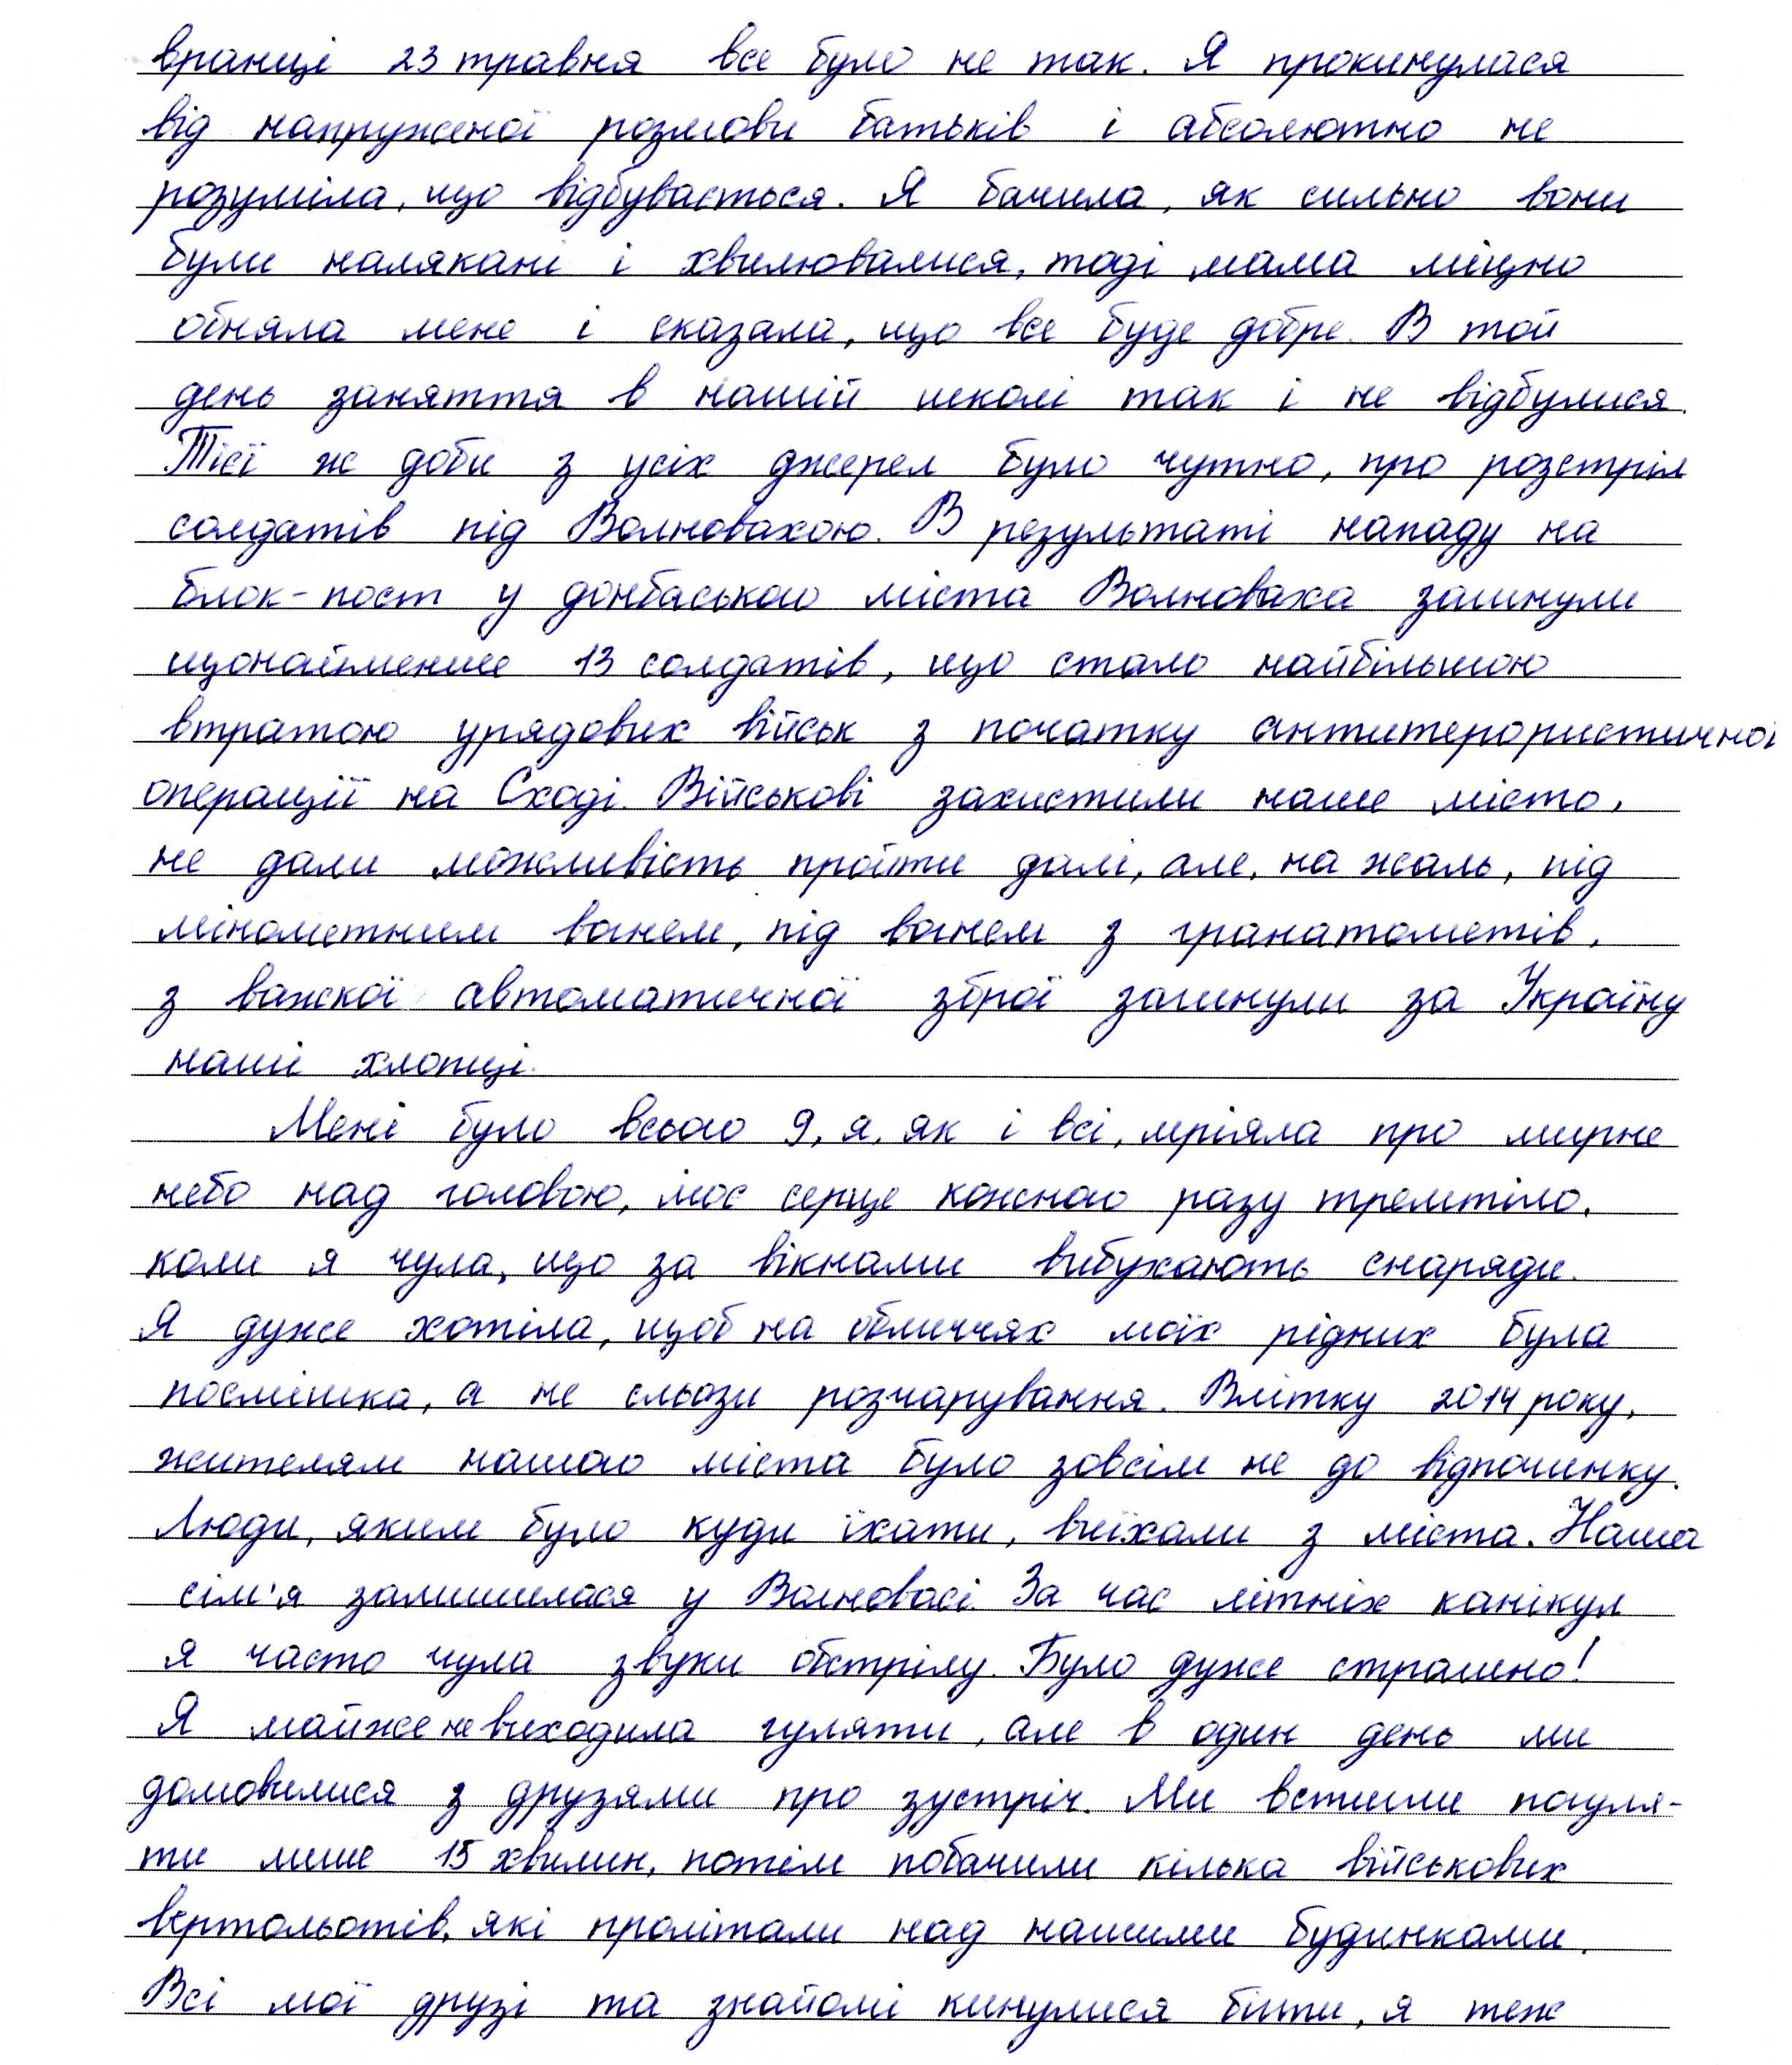 вранці 23 травня все було не так. Я прокинулася
від напруженої розмови батьків і абсолютно не
розуміла, що відбувається. Я бачила, як сильно вони
були налякані і хвилювалися, тоді мама міцно
обняла мене і сказала, що все буде добре. В той
день заняття в нашій школі так і не відбулися.
Тієї ж доби з усіх джерел було чутно, про розстріл
солдатів під Волновахою. В результаті нападу на
блок-пост у донбаського міста Волноваха загинули
щонайменше 13 солдатів, що стало найбільшою
втратою урядових військ з початку антитерористичної
операції на Сході. Військові захистили наше місто,
не дали можливість пройти далі, але, на жаль, під
мінометним вогнем, під вогнем з гранатометів,
з важкої автоматичної зброї загинули за Україну
наші хлопці.
Мені було всього 9, я, як і всі, мріяла про мирне
небо над головою, моє серце кожного разу тремтіло,
коли я чула, що за вікнами вибухають снаряди.
Я дуже хотіла, щоб на обличчях моїх рідних була
посмішка, а не сльози розчарування. Влітку 2014 року,
жителям нашого міста було зовсім не до відпочинку.
Люди, яким було куди їхати, виїхали з міста. Наша
сім'я залишилася у Волновасі. За час літніх канікул
я часто чула звуки обстрілу. Було дуже страшно!
Я майже не виходила гуляти, але в один день ми
домовилися з друзями про зустріч. Ми встигли погуля-
ти лише 15 хвилин, потім побачили кілька військових
вертольотів, які пролітали над нашими будинками.
Всі мої друзі та знайомі кинулися бігти, я теж